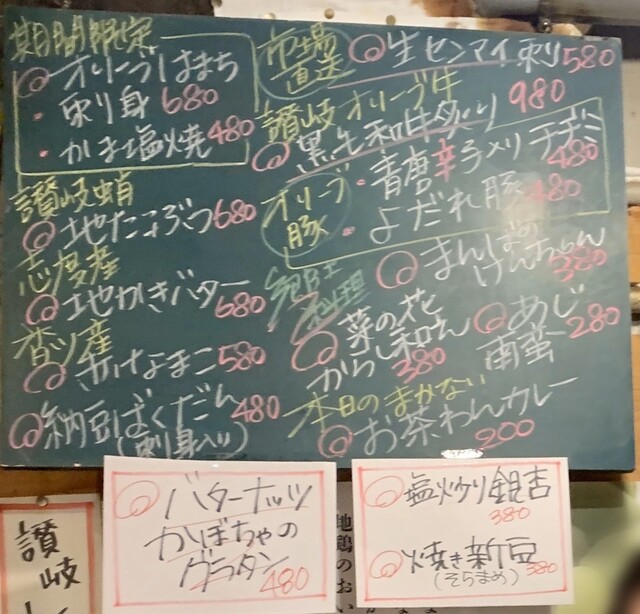 期間限定
オリーブはまち
・刺り身 680
・かま塩焼 480
讃岐蛸
地たこぶつ 680
志度産
地かきバター 680
香川産
赤なまこ 580
納豆ばくだん 480
(刺り身入り)
市場直送
生センマイ刺り 580
讃岐オリーブ牛
黒毛和牛炙り 980
オリーブ豚
・青唐辛子メリチヂミ 480
・よだれ豚 480
郷土料理
まんばのけんちゃん 380
菜の花からし和え 380
あじ南蛮 280
本日のまかない
お茶わんカレー 200
バターナッツ
かぼちゃの
グラタン 480
塩炒り銀杏 380
焼き新豆 380
(そらまめ)
讃岐
地鶏のおい